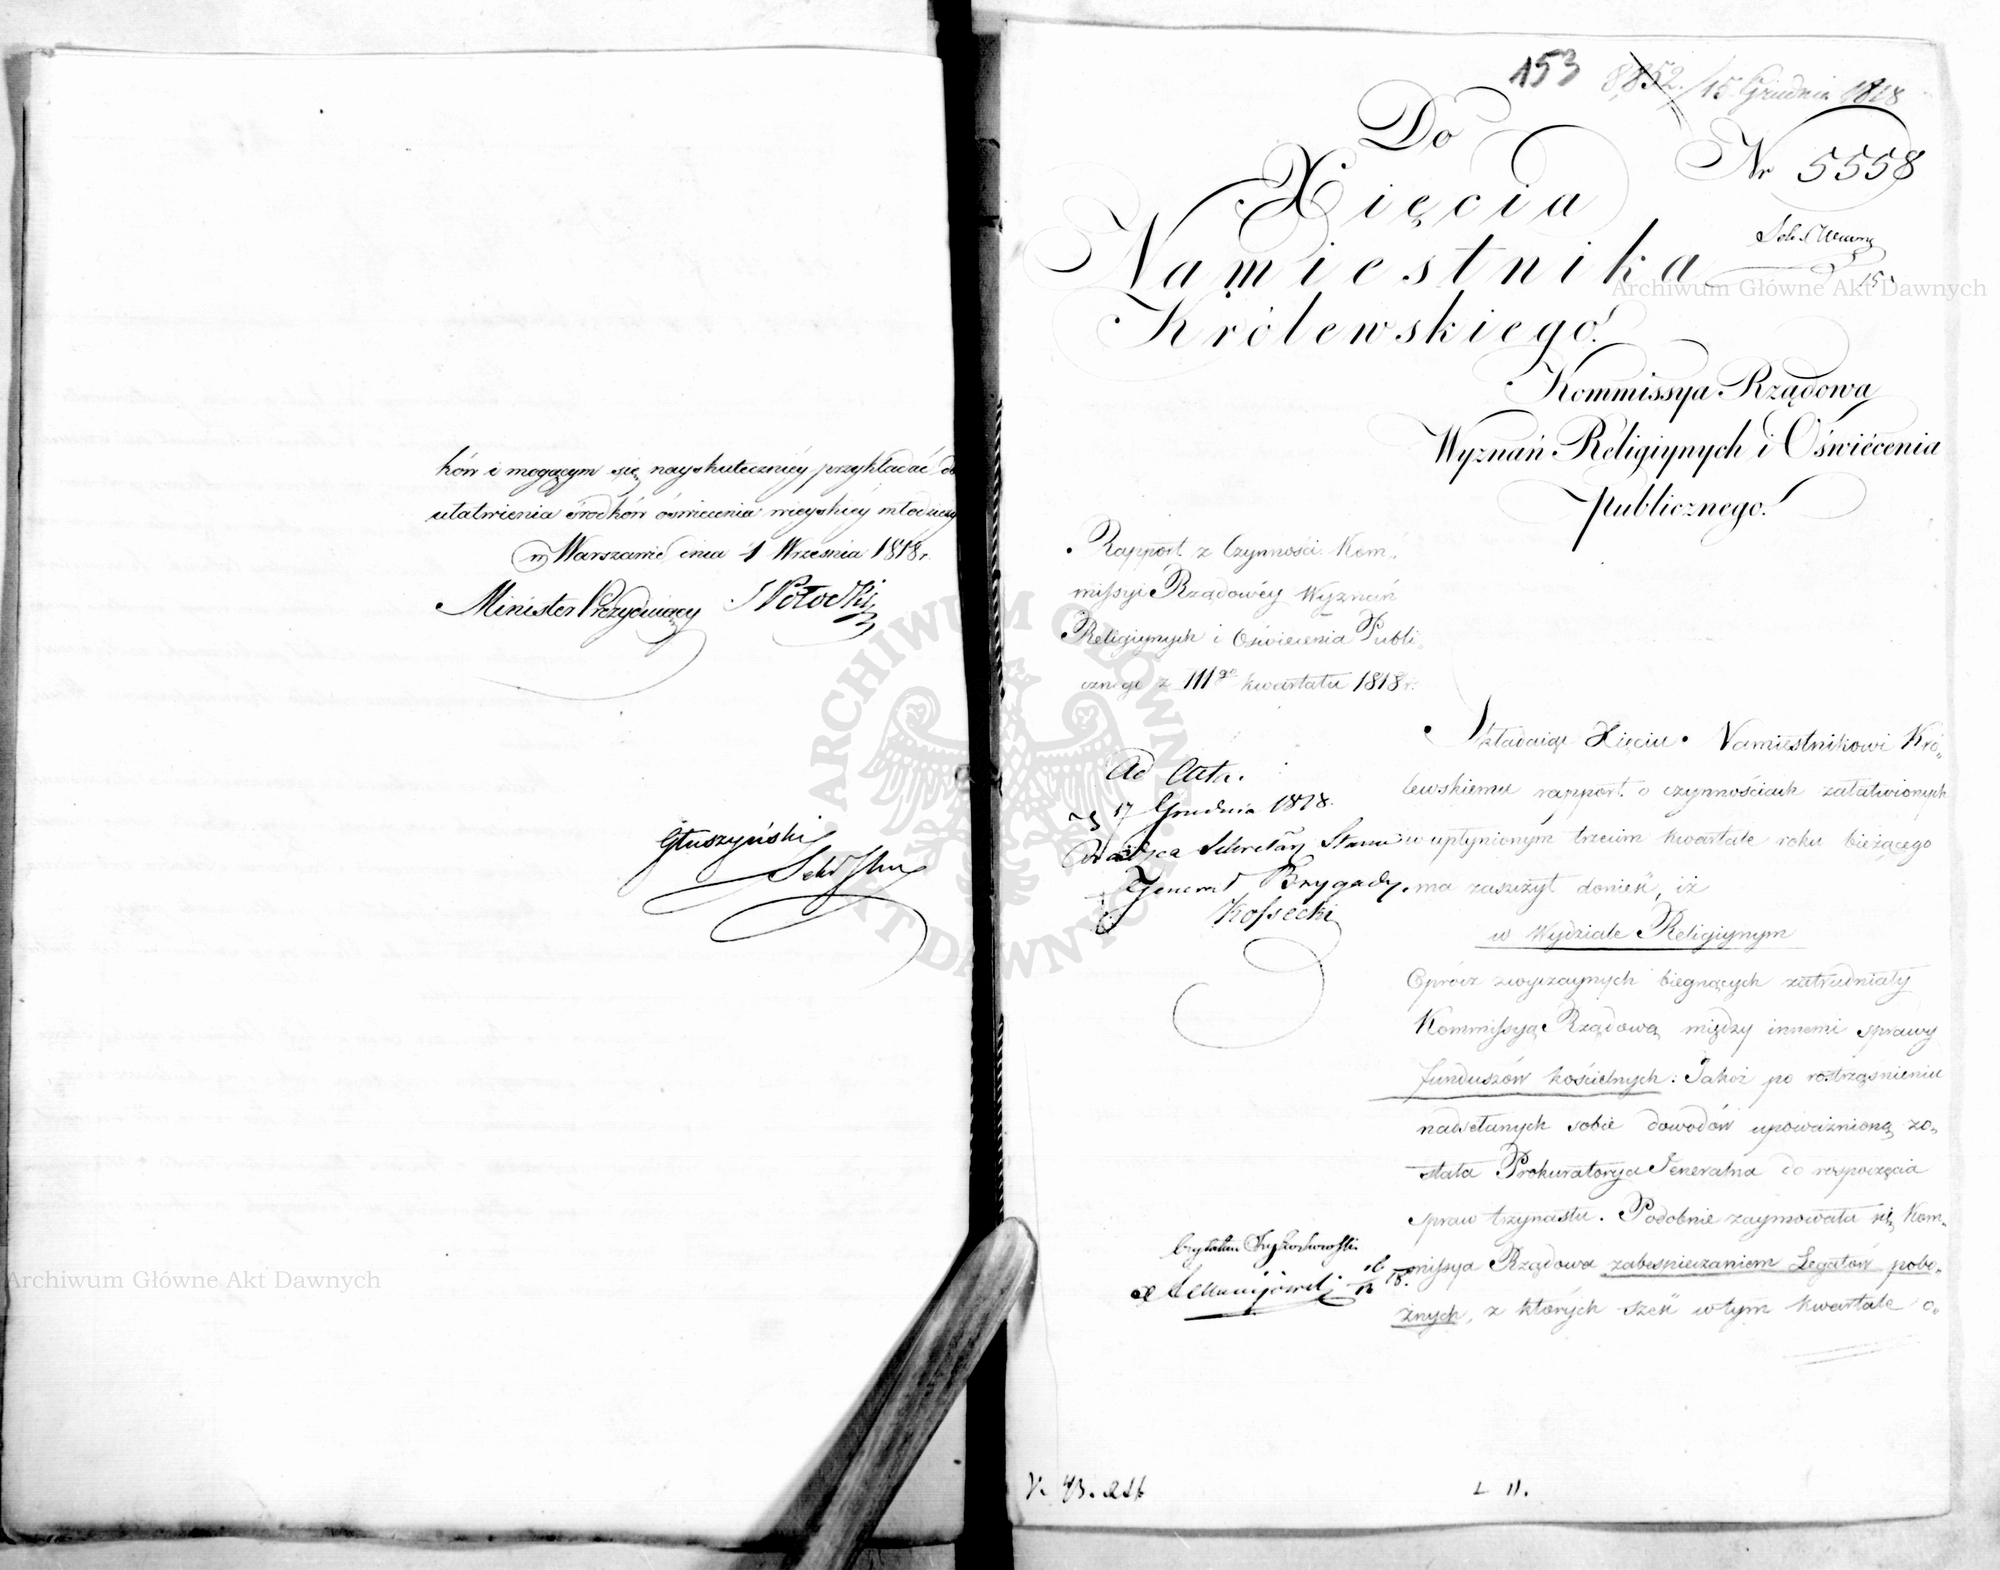 ków i mogącym się nayskuteczniéy przykładać do
ułatwienia środków oświecenia wieyskiéy młodzieży
w Warszawie dnia 1 Września 1818 r.
Minister Prezyduiący S Potocki
Głuszyński
153
8,852./15 Grudnia 1818
Do
Nr 5558
Xięcia
Namiestnika
Królewskiego.
Kommissya Rządowa
Wyznań Religiynych i Oświécenia
publicznego.
Rapport z Czynności Kom-
missyi Rządowéy Wyznań
Religiynych i Oświecenia Publi-
cznego z IIIgo kwartału 1818 r.
Składaiąc Xięciu Namiestnikowi Kró-
lewskiemu rapport o czynnościach załatwionych
w upłynionym trzecim kwartale roku bieżącego
ma zaszczyt donieść, iż
w Wydziale Religiynym
Oprócz zwyczaynych biegnących zatrudniały
Kommissyą Rządową między innemi sprawy
funduszów kościelnych: Jakoż po roztrząśnieniu
nadsełanych sobie dowodów upoważnioną zo-
stała Prokuratorya Jeneralna do rozpoczęcia
spraw trzynastu. Podobnie zaymowała się Kom-
missya Rządowa zabespieczaniem Legatów pobo-
żnych, z których sześć w tym kwartale o-
Ad Acta.
17 Grudnia 1818.
Radzca Sekretarz Stanu
Generał Brygady
Kossecki
L 11.
Archiwum Główne Akt Dawnych
Archiwum Główne Akt Dawnych
ARCHIWUM GŁÓWNE AKT DAWNYCH